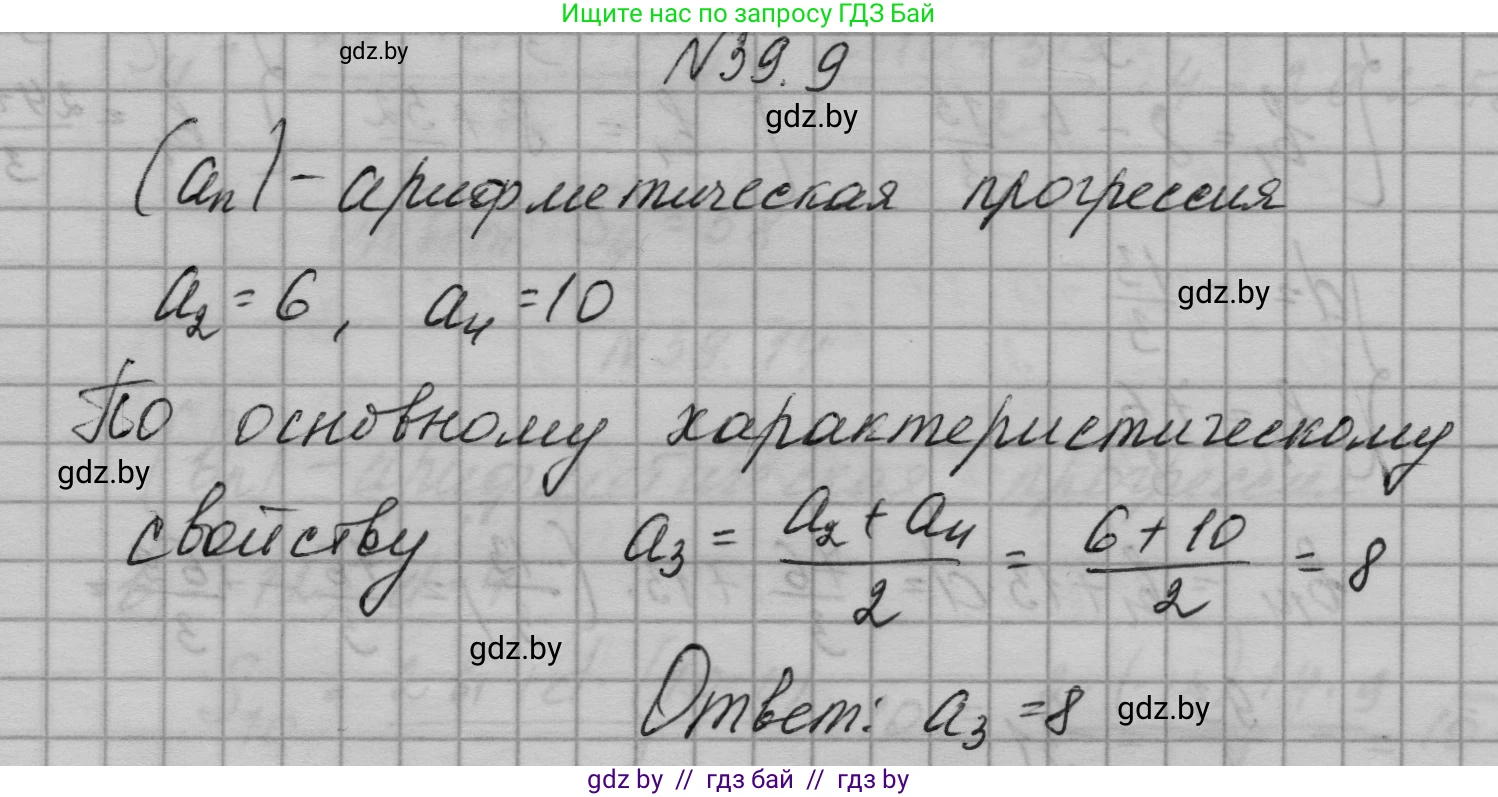 Ищите нас по запросу ГДЗ Бай
gdz.by
N39.9
gdz.by
(aₙ) - арифметическая прогрессия
a₂ = 6, a₄ = 10
gdz.by
По основному характеристическому
gdz.by
свойству a₃ = (a₂ + a₄)/2 = (6 + 10)/2 = 8
gdz.by
Ответ: a₃ = 8
gdz.by
gdz by // гдз бай // гдз by